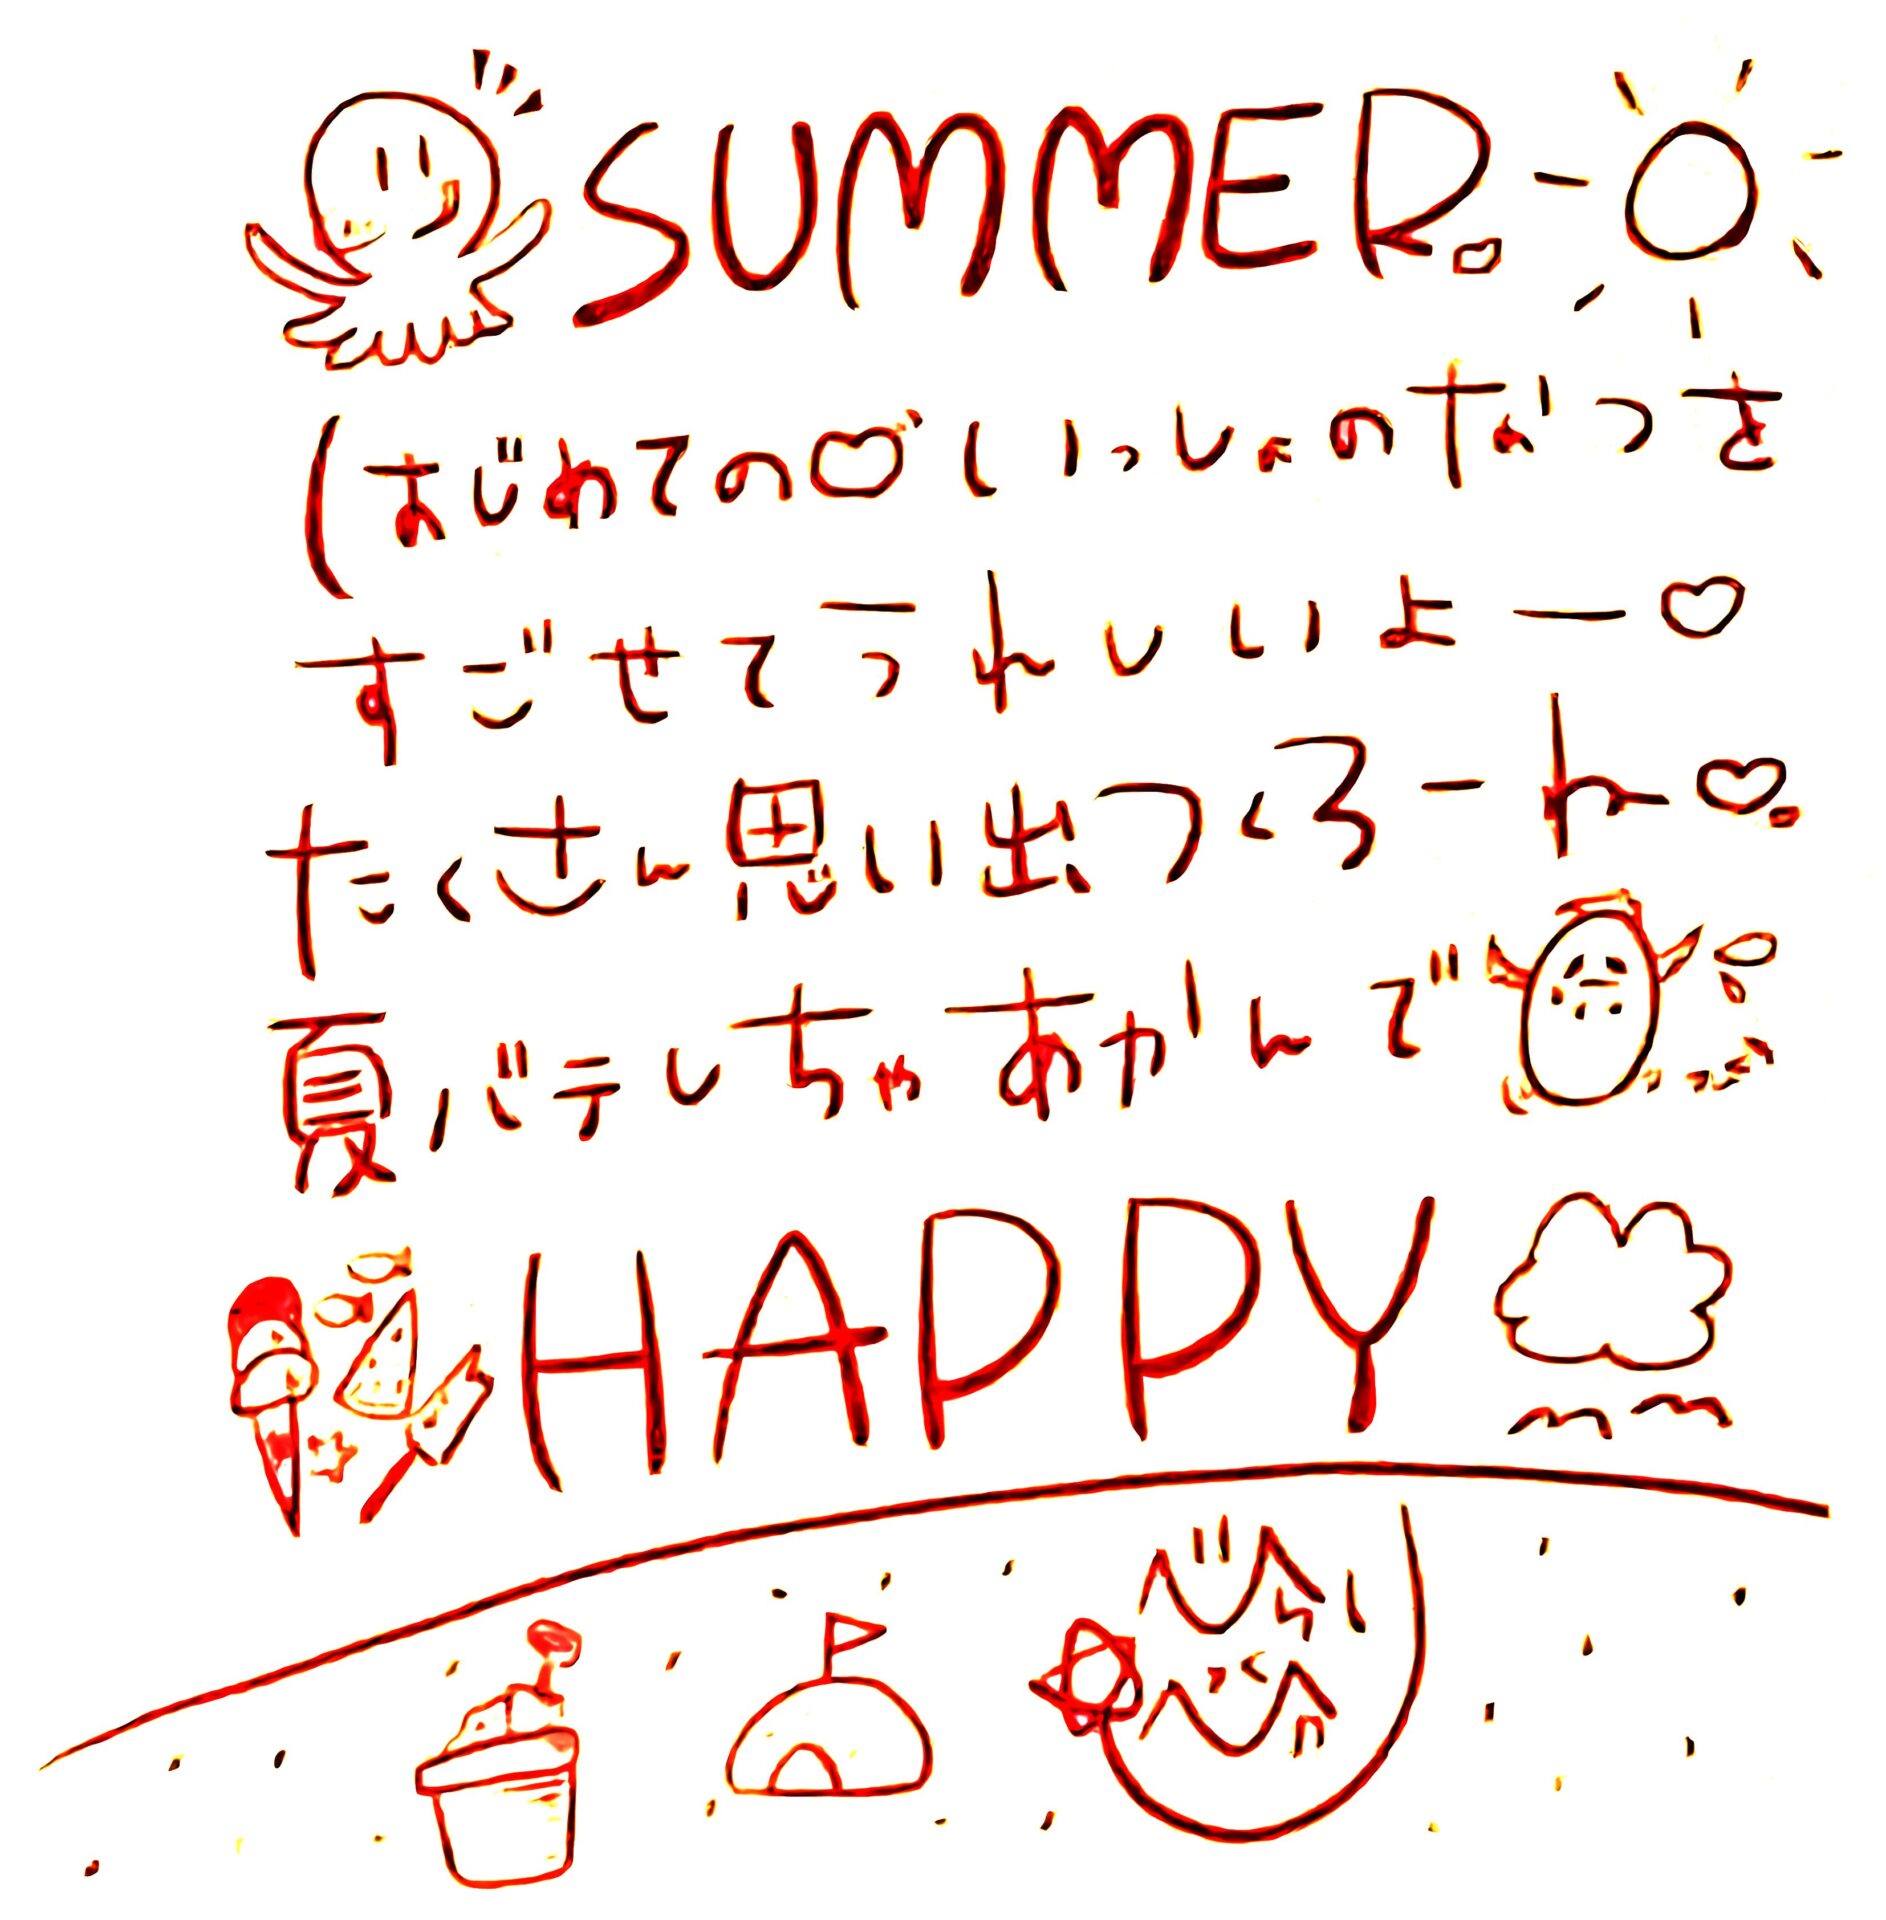 SUMMER
はじめての♡いっしょのなつを
すごせてうれしいよー♡
たくさん思い出つくろーね♡
夏バテしちゃあかんで
HAPPY